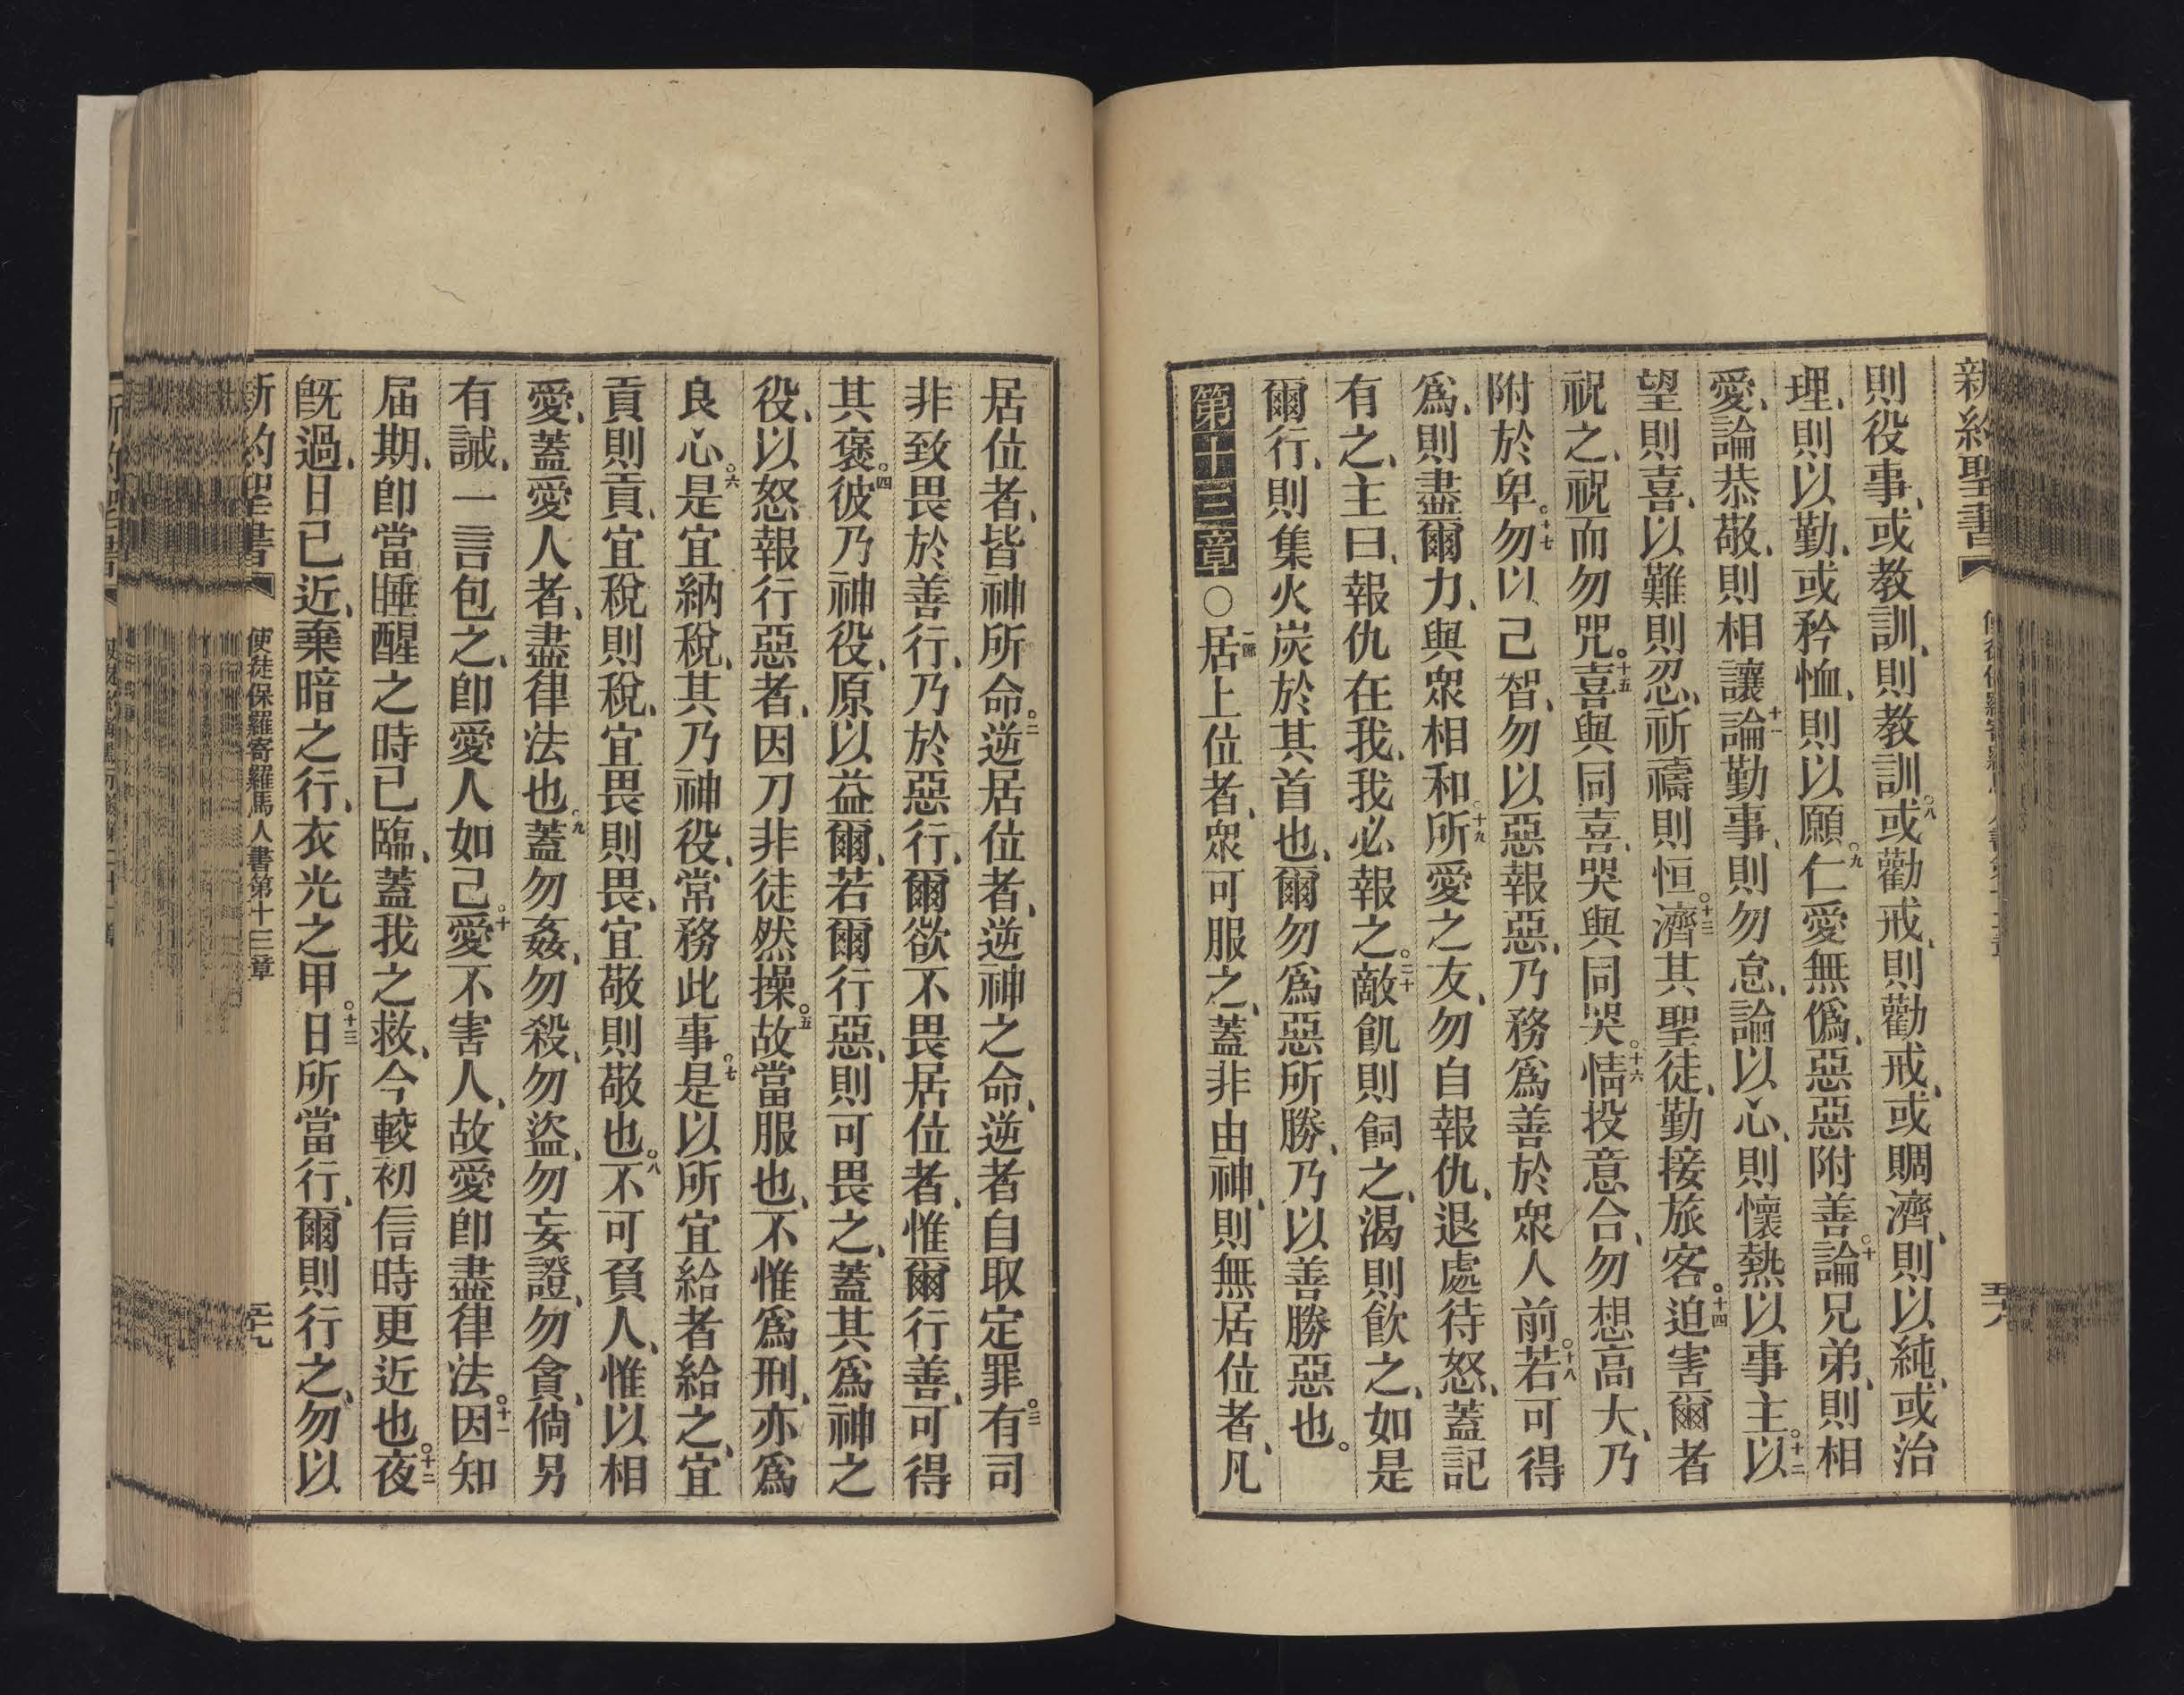 新約聖書
則役事、或教訓、則教訓、○八或勸戒、則勸戒、或賙濟、則以純、或治
理、則以勤、或矜恤、則以願、○九仁愛無僞、惡惡附善、○十論兄弟、則相
愛、論恭敬、則相讓、十一論勤事、則勿怠、論以心、則懷熱以事主、○十二以
望則喜、以難則忍、祈禱則恒、○十三濟其聖徒、勤接旅客、○十四迫害爾者
祝之、祝而勿咒、○十五喜與同喜、哭與同哭、○十六情投意合、勿想高大、乃
附於卑、○十七勿以己智、勿以惡報惡、乃務爲善於衆人前、○十八若可得
爲、則盡爾力、與衆相和、○十九所愛之友、勿自報仇、退處待怒、蓋記
有之、主曰、報仇在我、我必報之、○二十敵飢則飼之、渴則飮之、如是
爾行、則集火炭於其首也、爾勿爲惡所勝、乃以善勝惡也。
第十三章○一節居上位者、衆可服之、蓋非由神、則無居位者、凡
居位者、皆神所命、○二逆居位者、逆神之命、逆者自取定罪、○三有司
非致畏於善行、乃於惡行、爾欲不畏居位者、惟爾行善、可得
其褒、○四彼乃神役、原以益爾、若爾行惡、則可畏之、蓋其爲神之
役、以怒報行惡者、因刀非徒然操、○五故當服也、不惟爲刑、亦爲
良心、○六是宜納稅、其乃神役、常務此事、○七是以所宜給者給之、宜
貢則貢、宜稅則稅、宜畏則畏、宜敬則敬也、○八不可負人、惟以相
愛、蓋愛人者、盡律法也、○九蓋勿姦、勿殺、勿盜、勿妄證、勿貪、倘另
有誡、一言包之、卽愛人如己、○十愛不害人、故愛卽盡律法、○十一因知
届期、卽當睡醒之時已臨、蓋我之救、今較初信時更近也、○十二夜
旣過、日已近、棄暗之行、衣光之甲、○十三日所當行、爾則行之、勿以
新約聖書 使徒保羅寄羅馬人書第十三章